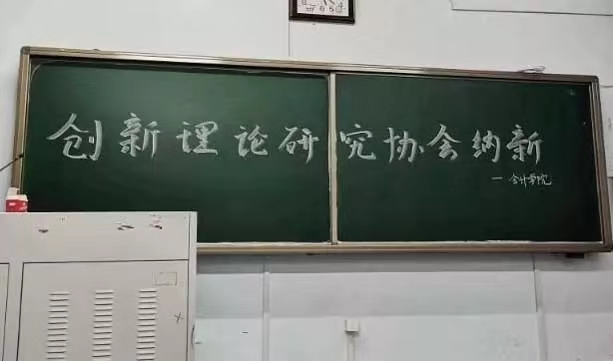 创新理论研究协会纳新
一会计学院